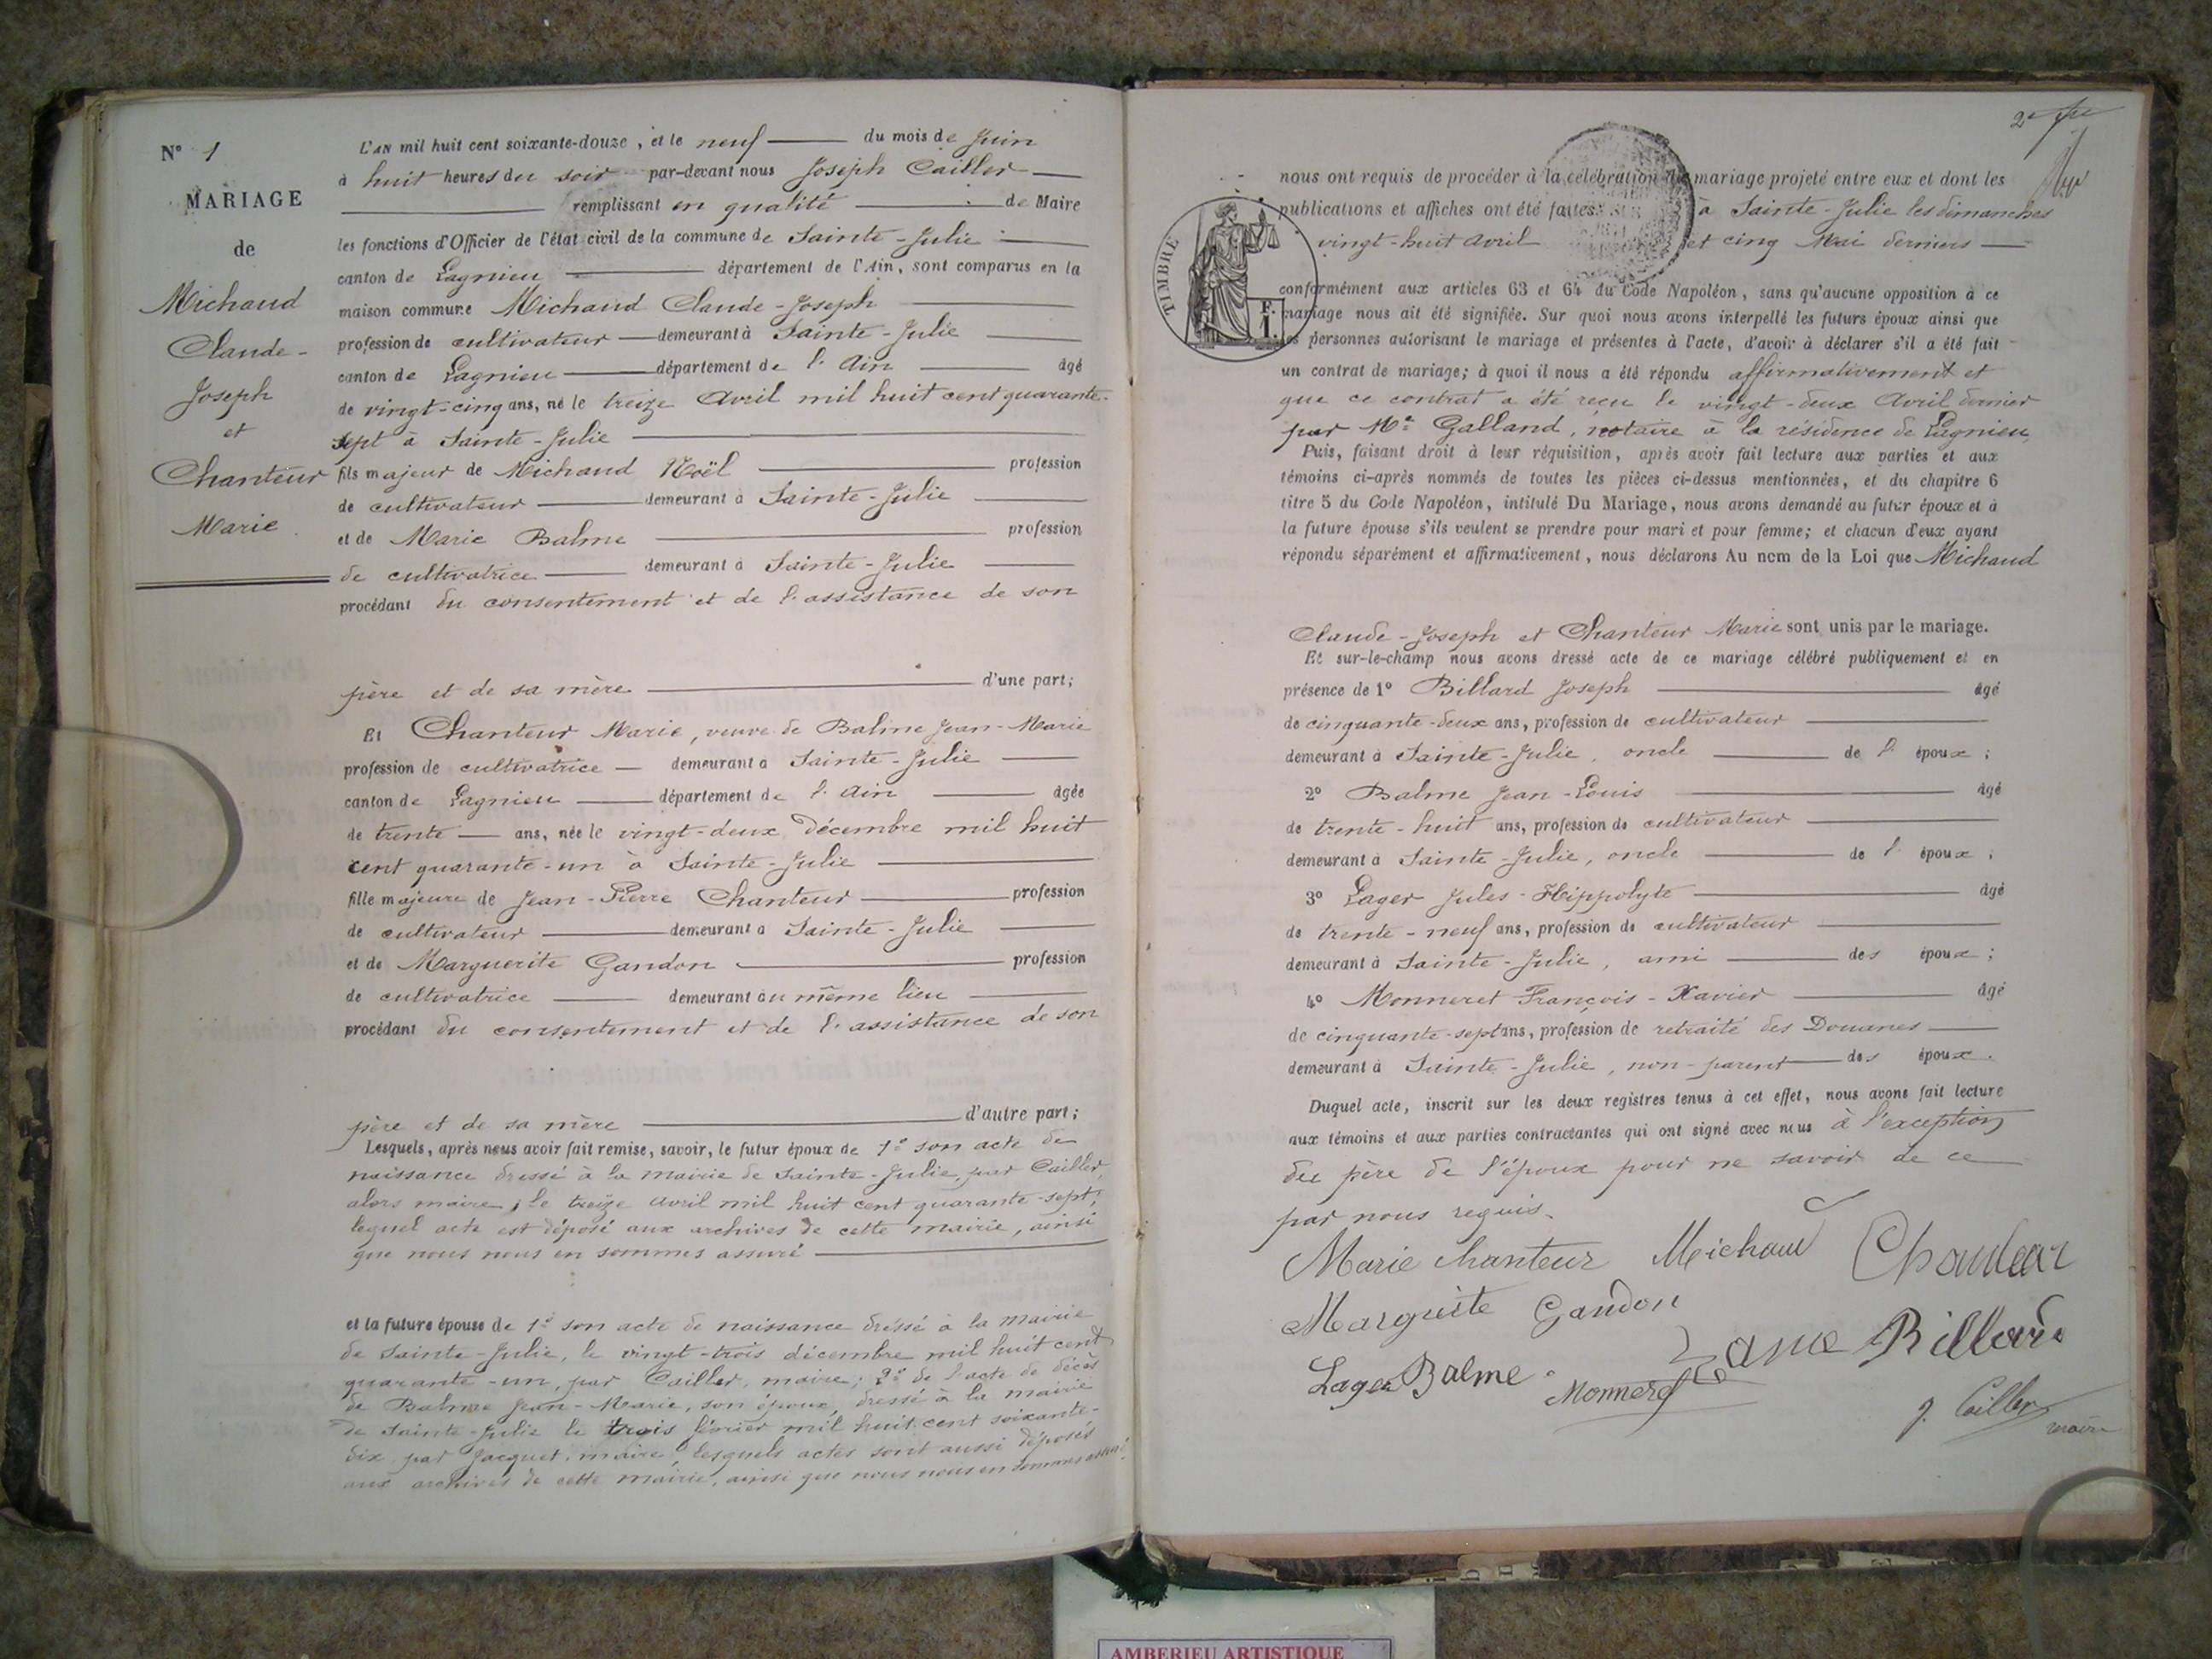 N° 1
MARIAGE
de
Michaud
Claude-
Joseph
et
Chanteur
Marie
L'AN mil huit cent soixante-douze, et le neuf du mois de Juin
à huit heures du soir par-devant nous Joseph Cailler
remplissant en qualité de Maire
les fonctions d'Officier de l'état civil de la commune de Sainte-Julie
canton de Lagnieu département de l'Ain, sont comparus en la
maison commune Michaud Claude-Joseph
profession de cultivateur demeurant à Sainte-Julie
canton de Lagnieu département de l'Ain âgé
de vingt-cinq ans, né le treize Avril mil huit cent quarante-
sept à Sainte-Julie
fils majeur de Michaud Noël profession
de cultivateur demeurant à Sainte-Julie
et de Marie Balme profession
de cultivatrice demeurant à Sainte-Julie
procédant du consentement et de l'assistance de son
père et de sa mère d'une part;
Et Chanteur Marie, veuve de Balme Jean-Marie
profession de cultivatrice demeurant à Sainte-Julie
canton de Lagnieu département de l'Ain âgée
de trente ans, née le vingt-deux décembre mil huit
cent quarante-un à Sainte-Julie
fille majeure de Jean-Pierre Chanteur profession
de cultivateur demeurant à Sainte-Julie
et de Marguerite Gandon profession
de cultivatrice demeurant au même lieu
procédant du consentement et de l'assistance de son
père et de sa mère d'autre part;
Lesquels, après nous avoir fait remise, savoir, le futur époux de 1° son acte de
naissance dressé à la mairie de Sainte-Julie, par Cailler,
alors maire, le treize avril mil huit cent quarante-sept,
lequel acte est déposé aux archives de cette mairie, ainsi
que nous nous en sommes assuré
et la future épouse de 1° son acte de naissance dressé à la mairie
de Sainte-Julie, le vingt-trois décembre mil huit cent
quarante-un, par Cailler, maire; 2° de l'acte de décès
de Balme Jean-Marie, son époux, dressé à la mairie
de Sainte-Julie le trois février mil huit cent soixante-
dix par Jacquet, maire, lesquels actes sont aussi déposés
aux archives de cette mairie, ainsi que nous nous en sommes assuré.
nous ont requis de procéder à la célébration du mariage projeté entre eux et dont les
publications et affiches ont été faites à Sainte-Julie les dimanches
vingt-huit Avril et cinq Mai derniers
TIMBRE
F.
1.
conformément aux articles 63 et 64 du Code Napoléon, sans qu'aucune opposition à ce
mariage nous ait été signifiée. Sur quoi nous avons interpellé les futurs époux ainsi que
les personnes autorisant le mariage et présentes à l'acte, d'avoir à déclarer s'il a été fait
un contrat de mariage; à quoi il nous a été répondu affirmativement et
que ce contrat a été reçu le vingt-deux Avril dernier
par Me Galland, notaire à la résidence de Lagnieu,
Puis, faisant droit à leur réquisition, après avoir fait lecture aux parties et aux
témoins ci-après nommés de toutes les pièces ci-dessus mentionnées, et du chapitre 6
titre 5 du Code Napoléon, intitulé Du Mariage, nous avons demandé au futur époux et à
la future épouse s'ils veulent se prendre pour mari et pour femme; et chacun d'eux ayant
répondu séparément et affirmativement, nous déclarons Au nom de la Loi que Michaud
Claude-Joseph et Chanteur Marie sont unis par le mariage.
Et sur-le-champ nous avons dressé acte de ce mariage célébré publiquement et en
présence de 1° Billard Joseph âgé
de cinquante-deux ans, profession de cultivateur
demeurant à Sainte-Julie, oncle de l'époux;
2° Balme Jean-Louis âgé
de trente-huit ans, profession de cultivateur
demeurant à Sainte-Julie, oncle de l'époux;
3° Lager Jules-Hippolyte âgé
de trente-neuf ans, profession de cultivateur
demeurant à Sainte-Julie, ami des époux;
4° Monneret François-Xavier âgé
de cinquante-sept ans, profession de retraité des Douanes
demeurant à Sainte-Julie, non-parent des époux.
Duquel acte, inscrit sur les deux registres tenus à cet effet, nous avons fait lecture
aux témoins et aux parties contractantes qui ont signé avec nous à l'exception
du père de l'époux pour ne savoir de ce
par nous requis.
Marie chanteur Michaud Chanteur
Marguite Gandon
Billard
Lager Balme
Monneret
J. Cailler
maire
AMBERIEU ARTISTIQUE